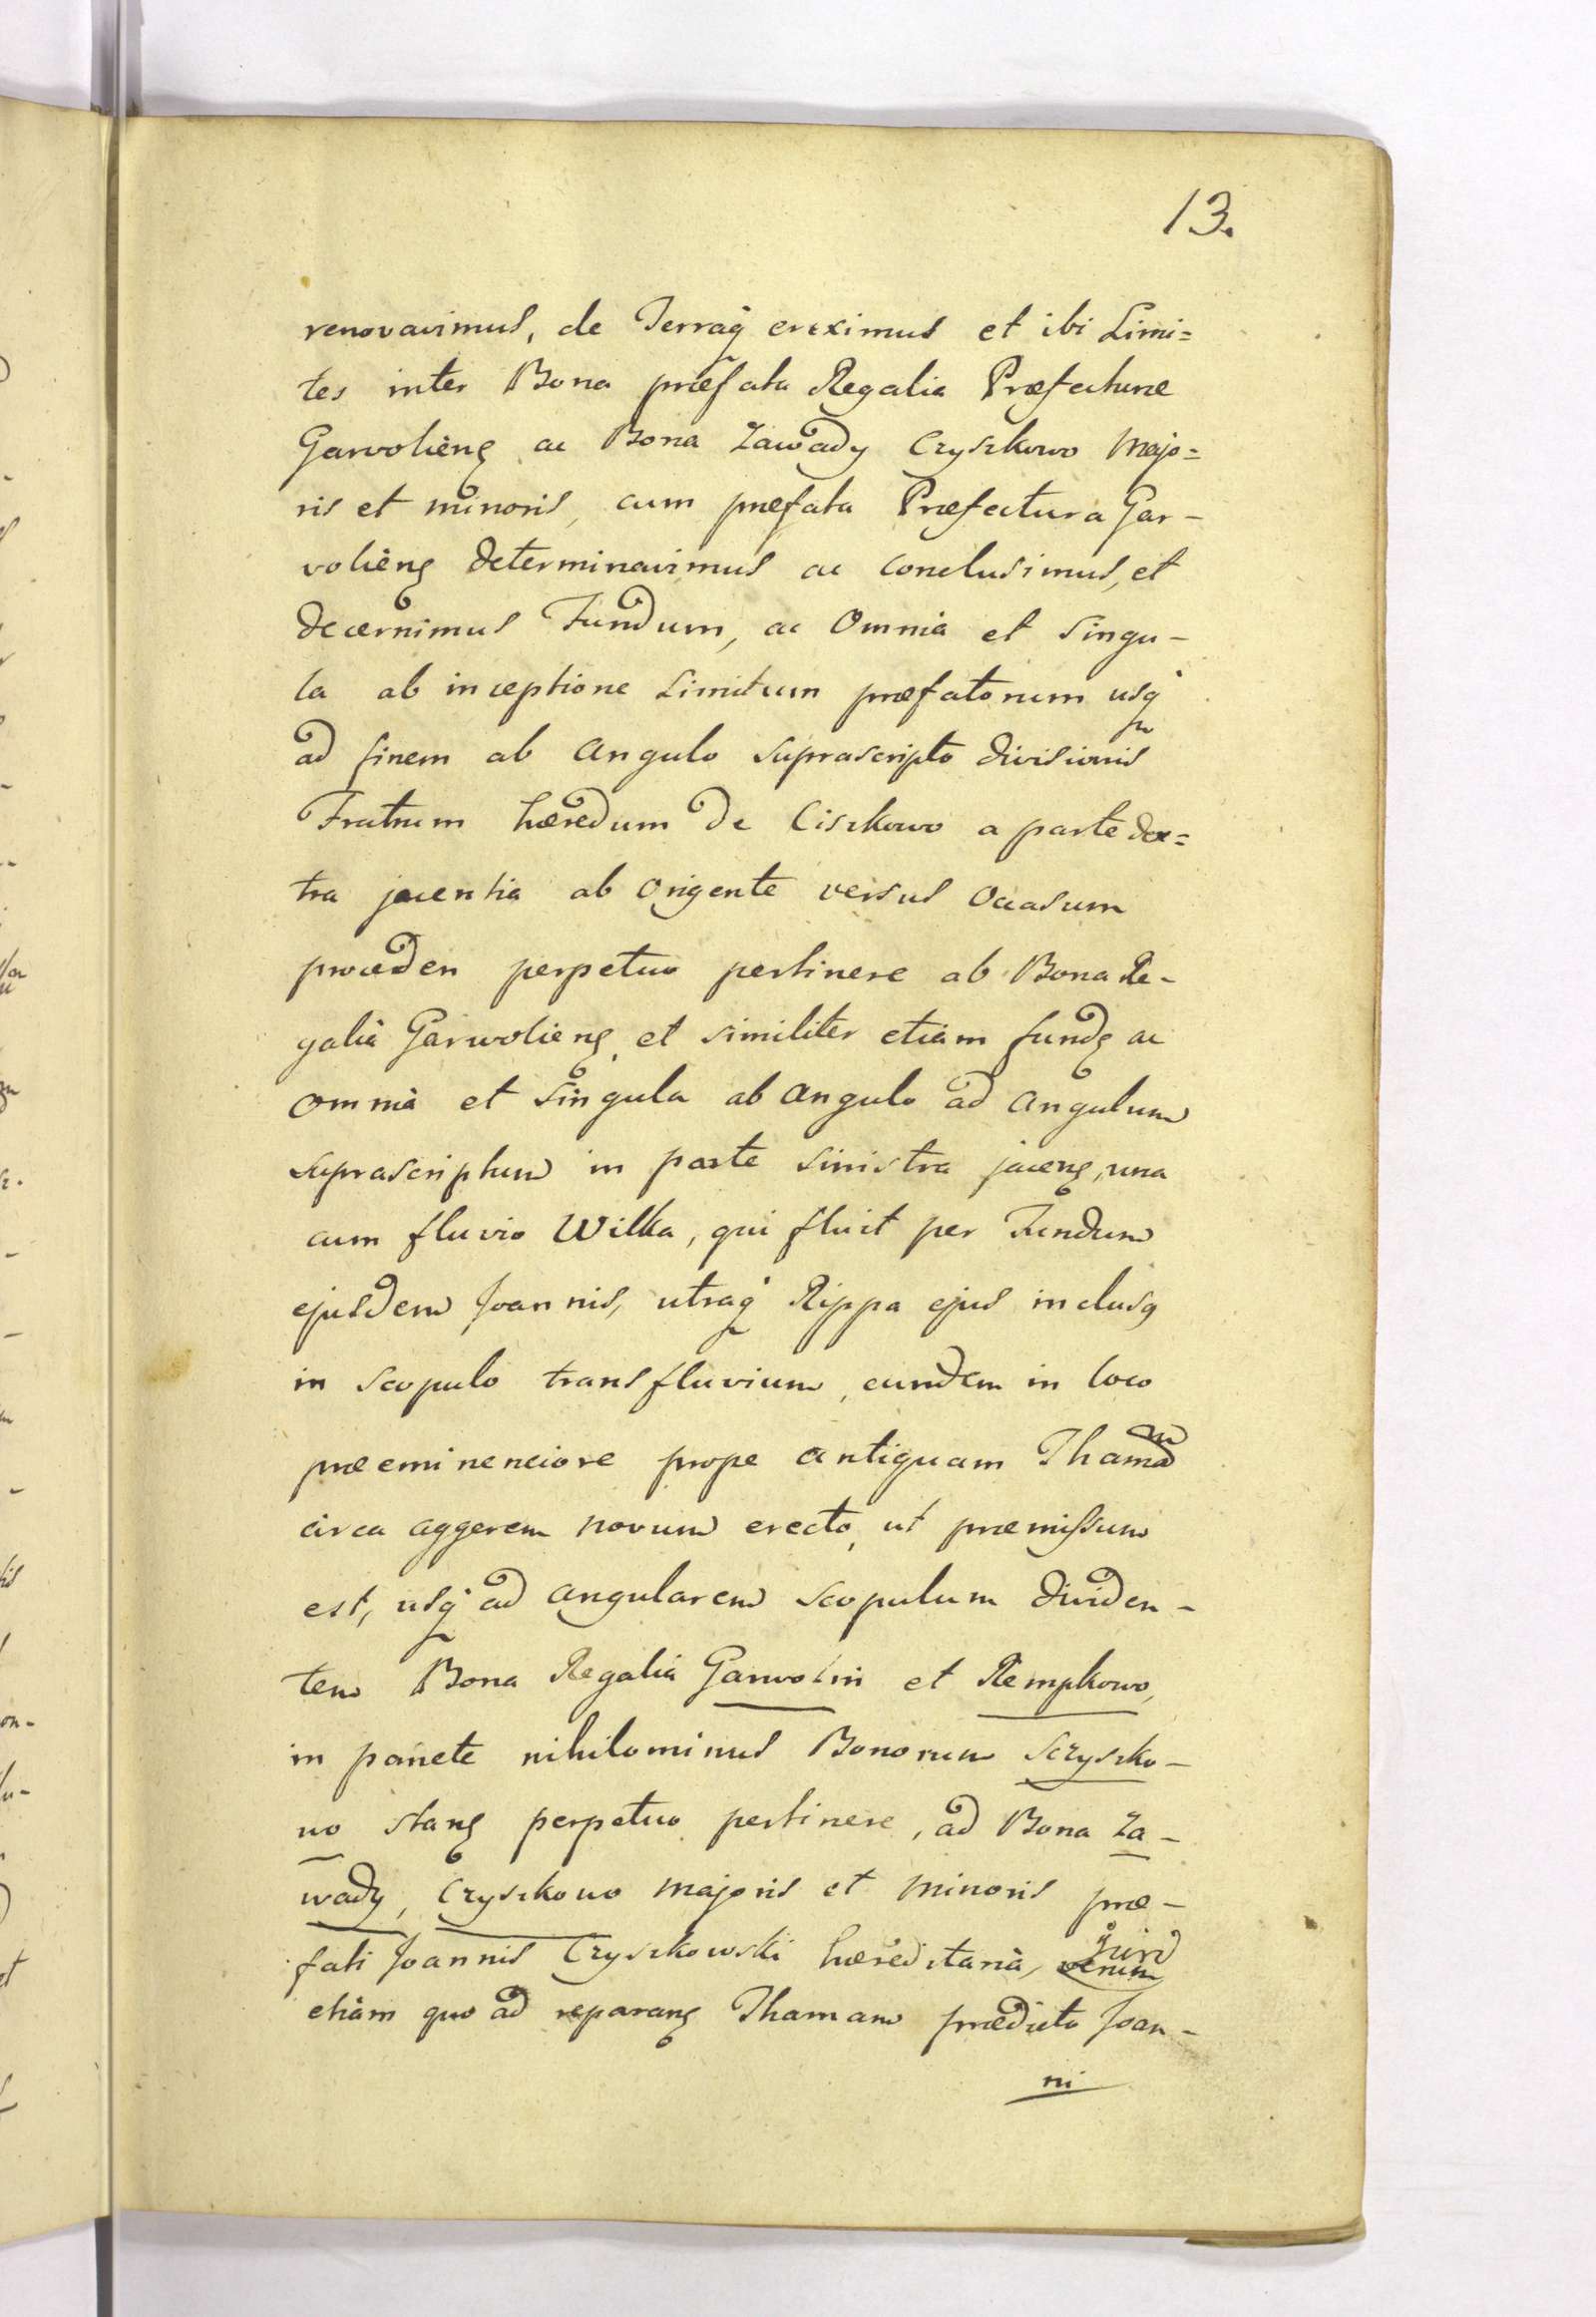 13.
renovavimus, de Terraq erexximus et ibi Limi=
tes inter Bona præfata Regalia Præfecturæ
Garvolieng ac Bona Zawady Czyszkowo Majo=
ris et minoris, cum præfata Præfectura Gar-
volieng determinavimus ac conclusimus, et
decernimus Fundum, ac Omnia et Singu-
la ab inceptione Limitum præfatorum usq
ad finem ab Angulo suprascripto divisionis
Fratrum hæredum de Ciszkowo a parte dex=
tra jacentia ab origente versus Occasum
proceden perpetuo pertinere ab Bona Re-
galia Garwolieng et similiter etiam fundg ac
omnia et Singula ab Angulo ad Angulum
suprascriptum in parte sinistra jaceng, una
cum fluvio Wilka, qui fluit per Fundum
ejusdem Joannis, utraq Rippa ejus inclusq
in scopulo transfluvium, eundem in loco
præeminenciore prope antiquam Thamam
circa aggerem novum erecto, ut præmissum
est, usq ad angularem scopulum dividen-
tem Bona Regalia Garwolin et Rempkowo,
in pariete nihilominus Bonorum Sczyszko-
wo stang perpetuo pertinere, ad Bona Za-
wady, Czyszkowo majoris et Minoris præ-
fati Joannis Czyszkowski hæreditaria,
etiam quo ad reparang Thamam prædicto Joan-
ni